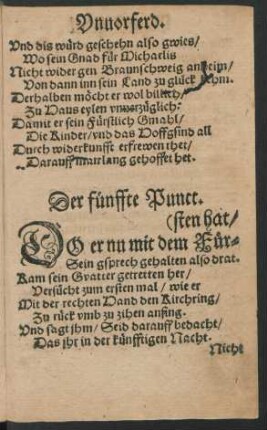 Vnuorferd.
Vnd dis würd geschehn also gwies/
Wo sein Gnad für Michaelis
Nicht wider gen Braunschweig anheim/
Von dann inn sein Land zu glück kehm.
Derhalben möcht er wol billich/
Zu Haus eylen vnuerzüglich:
Damit er sein Fürstlich Gmahl/
Die Kinder/ vnd das Hoffgsind all
Durch widerkunfft erfrewen thet/
Darauff man lang gehoffet het.
Der fünffte Punct.
(sten hat/
DO er nu mit dem Für-
Sein gsprech gehalten also drat.
Kam sein Gvatter getretten her/
Versücht zum ersten mal/ wie er
Mit der rechten Hand den Kirchring/
Zu rück vmb zu zihen anfing.
Vnd sagt ihm/ Seid darauff bedacht/
Das ihr in der künfftigen Nacht.
Nicht